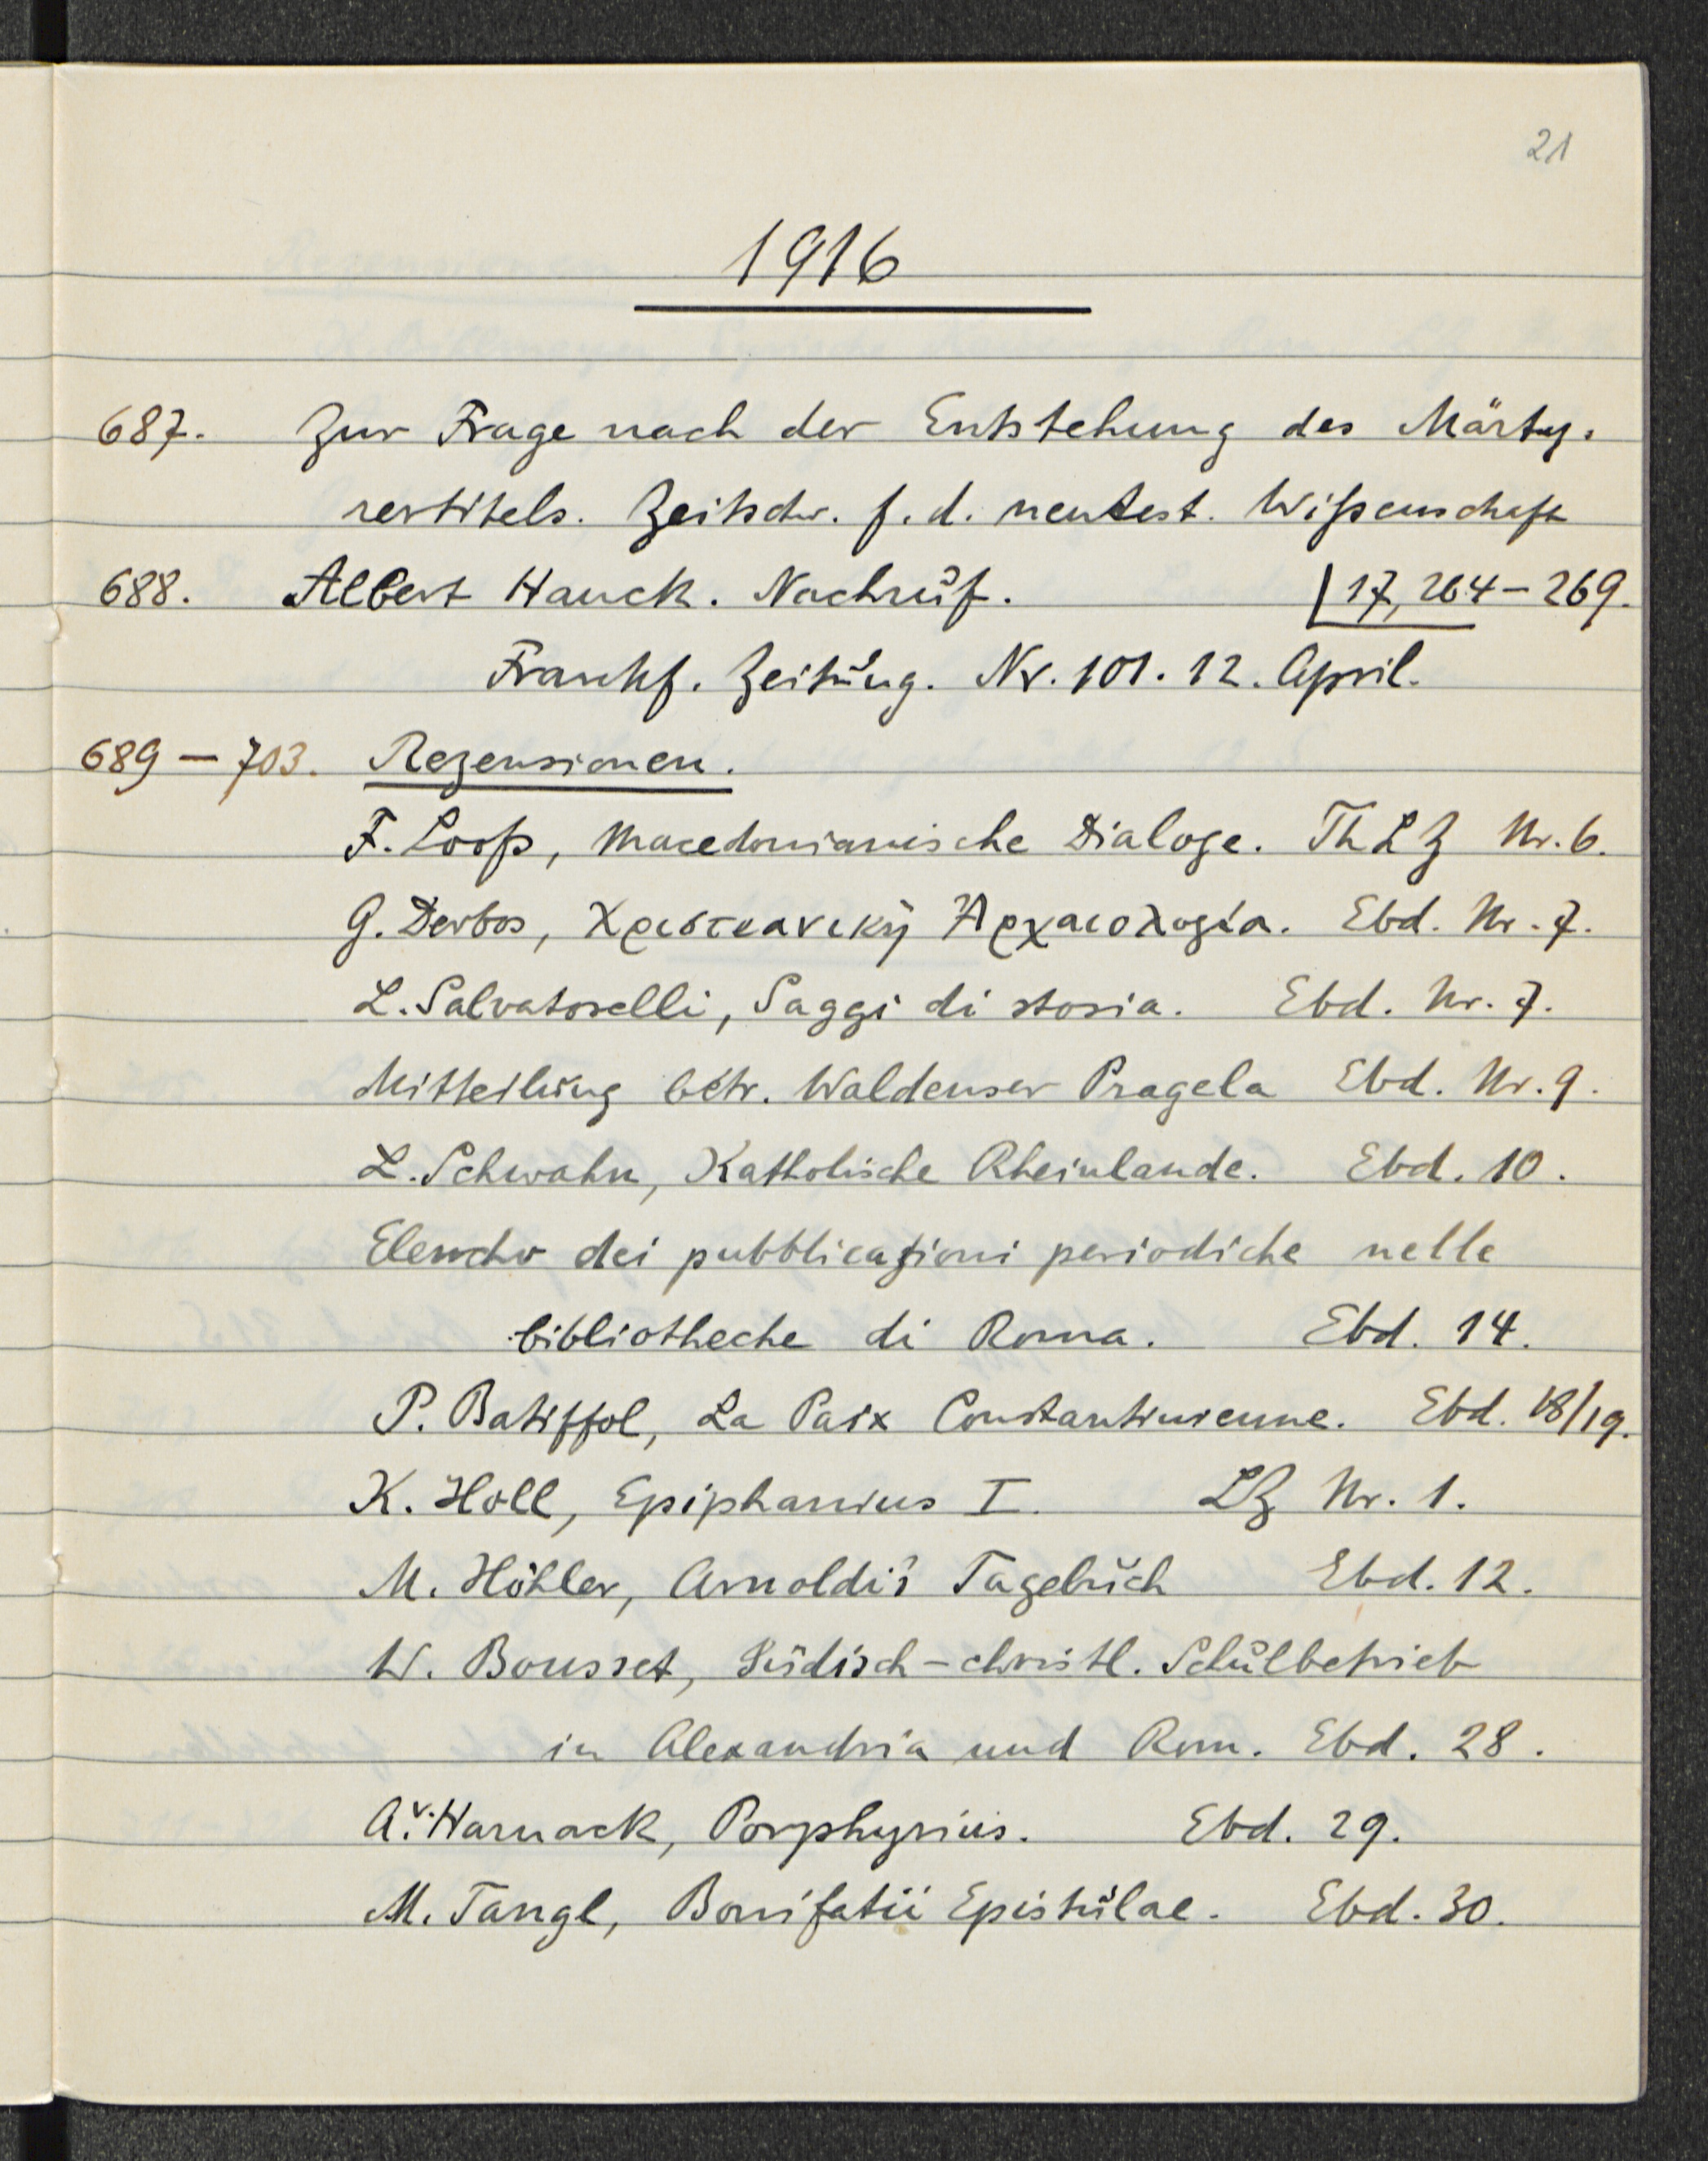 21
1916
687. Zur Frage nach der Entstehung des Märty-
rertitels. Zeitschr. f. d. neutest. Wißenschaft
688. Albert Hauck. Nachruf. | 17, 264-269.
Frankf. Zeitung. Nr. 101. 12. April.
689 — 703. Rezensionen.
F. Loofs, Macedonianische Dialoge. ThLZ Nr. 6.
G. Derbos, Χριστιανικὴ Ἀρχαιολογία. Ebd. Nr. 7.
L. Salvatorelli, Saggi di storia. Ebd. Nr. 7.
Mitteilung betr. Waldenser Pragela Ebd. Nr. 9.
L. Schwahn, Katholische Rheinlande. Ebd. 10.
Elencho dei pubblicazioni periodiche nelle
bibliotheche di Roma. Ebd. 14.
P. Batiffol, La Paix Constantinienne. Ebd. 18/19.
K. Holl, Epiphanius I. LZ Nr. 1.
M. Höhler, Arnoldi's Tagebuch Ebd. 12.
W. Bousset, Jüdisch-christl. Schulbetrieb
in Alexandria und Rom. Ebd. 28.
A. v. Harnack, Porphyrius. Ebd. 29.
M. Tangl, Bonifatii Epistulae. Ebd. 30.